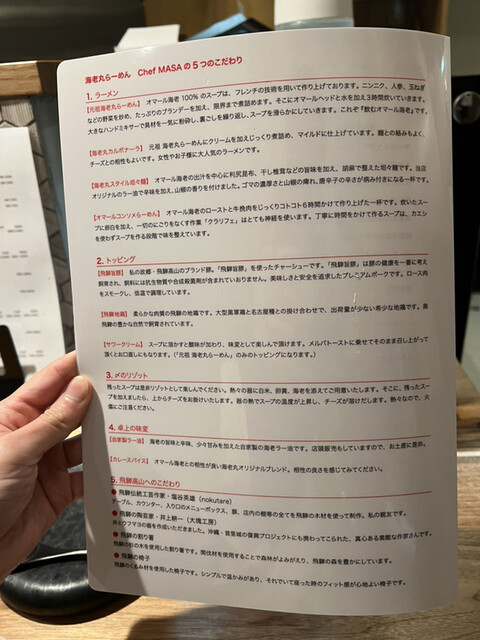 海老丸らーめん Chef MASAの5つのこだわり
1. ラーメン
【元祖海老丸らーめん】 オマール海老100%のスープは、フレンチの技術を用いて作り上げております。ニンニク、人参、玉ねぎ
などの野菜を炒め、たっぷりのブランデーを加え、限界まで煮詰めます。そこにオマールヘッドと水を加え3時間炊いていきます。
大きなハンドミキサーで具材を一気に粉砕し、裏ごしを繰り返し、スープを滑らかにしていきます。これぞ『飲むオマール海老』です。
【海老丸カルボナーラ】 元祖 海老丸らーめんにクリームを加えじっくり煮詰め、マイルドに仕上げています。麺との絡みもよく、
チーズとの相性もよいです。女性やお子様に大人気のラーメンです。
【海老丸スタイル坦々麺】 オマール海老の出汁を中心に利尻昆布、干し椎茸などの旨味を加え、胡麻で整えた坦々麺です。当店
オリジナルのラー油で辛味を加え、山椒の香りを付けました。ゴマの濃厚さと山椒の痺れ、唐辛子の辛さが病み付きになる一杯です。
【オマールコンソメらーめん】 オマール海老のローストと牛挽肉をじっくりコトコト6時間かけて作り上げた一杯です。炊いたスー
プに卵白を加え、一切のにごりをなくす作業『クラリフェ』はとても神経を使います。丁寧に時間をかけて作るスープは、カエシ
を使わずスープを作る段階で味を整えています。
2. トッピング
【飛騨旨豚】 私の故郷・飛騨高山のブランド豚。『飛騨旨豚』を使ったチャーシューです。『飛騨旨豚』は豚の健康を一番に考え
飼育され、飼料には抗生物質や合成殺菌剤が含まれておりません。美味しさと安全を追求したプレミアムポークです。ロース肉
をスモークし、低温で調理しています。
【飛騨地鶏】 柔らかな肉質の飛騨の地鶏です。大型異軍鶏と名古屋種との掛け合わせで、出荷量が少ない希少な地鶏です。奥
飛騨の豊かな自然で飼育されています。
【サワークリーム】 スープに溶かすと酸味が加わり、味変として楽しんで頂けます。メルバトーストに乗せてそのまま召し上がって
頂くとお口直しにもなります。(『元祖 海老丸らーめん』のみのトッピングになります。)
3. 〆のリゾット
残ったスープは是非リゾットとして楽しんでください。熱々の器に白米、卵黄、海老を添えてご用意いたします。そこに、残ったスー
プを加えましたら、上からチーズをお掛けいたします。器の熱でスープの温度が上昇し、チーズが溶けだします。熱々なので、火
傷にご注意ください。
4. 卓上の味変
【自家製ラー油】 海老の旨味と辛味、少々甘みを加えた自家製の海老ラー油です。店頭販売もしていますので、お土産に是非。
【カレースパイス】 オマール海老との相性が良い海老丸オリジナルブレンド。相性の良さを感じてみてください。
5. 飛騨高山へのこだわり
● 飛騨伝統工芸作家・塩谷英雄（nokutare）
テーブル、カウンター、入り口のメニューボックス、豚、店内の棚等の全てを飛騨の木材を使って制作。私の親友です。
● 飛騨の陶芸家・井上耕一（大塊工房）
丼とクワマヨの器を作成いただきました。沖縄・首里城の復興プロジェクトにも携わってこられた、真心ある素敵な作家さんです。
● 飛騨の割り箸
飛騨の杉の木を使用した割り箸です。間伐材を使用することで森林がよみがえり、飛騨の森を豊かにしています。
● 飛騨の椅子
飛騨のくるみ材を使用した椅子です。シンプルで温かみがあり、それでいて座った時のフィット感が心地よい椅子です。